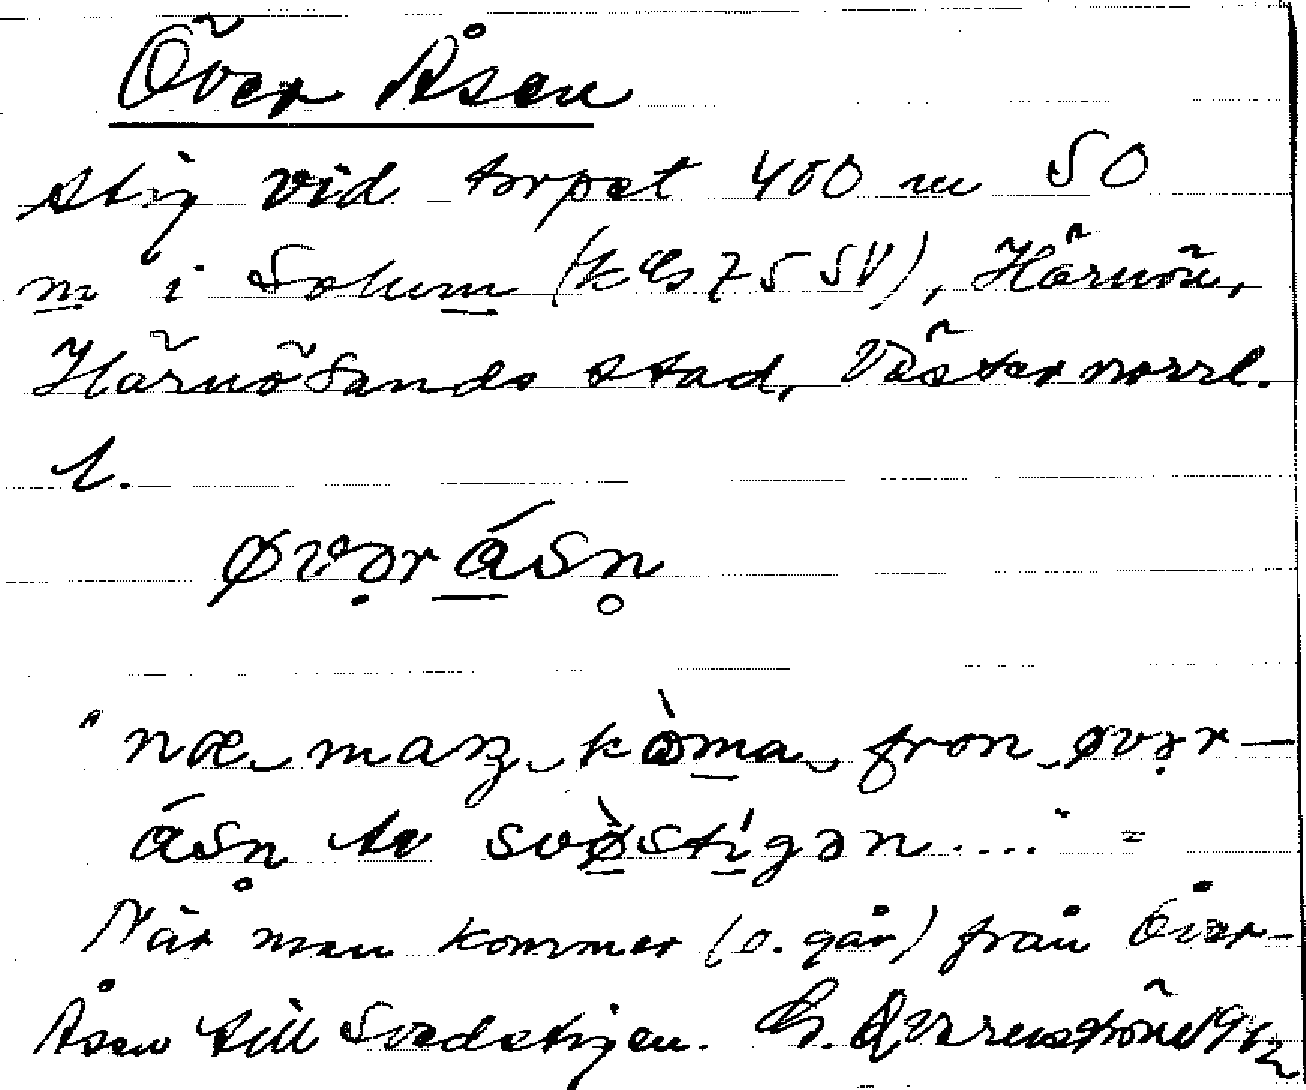 Över Åsen
stig vid torpet 400 m SO
m i Solum (k Gs 75 SV), Härnön,
Härnösands stad, Västernorrl.
l.
øvər ásn̥
"næ man kòma fron øvər-
ásn̥ te svø̀stígən...." =
När man kommer (o. går) från Över-
Åsen till Svedstigen. G. Qvarnström 1962